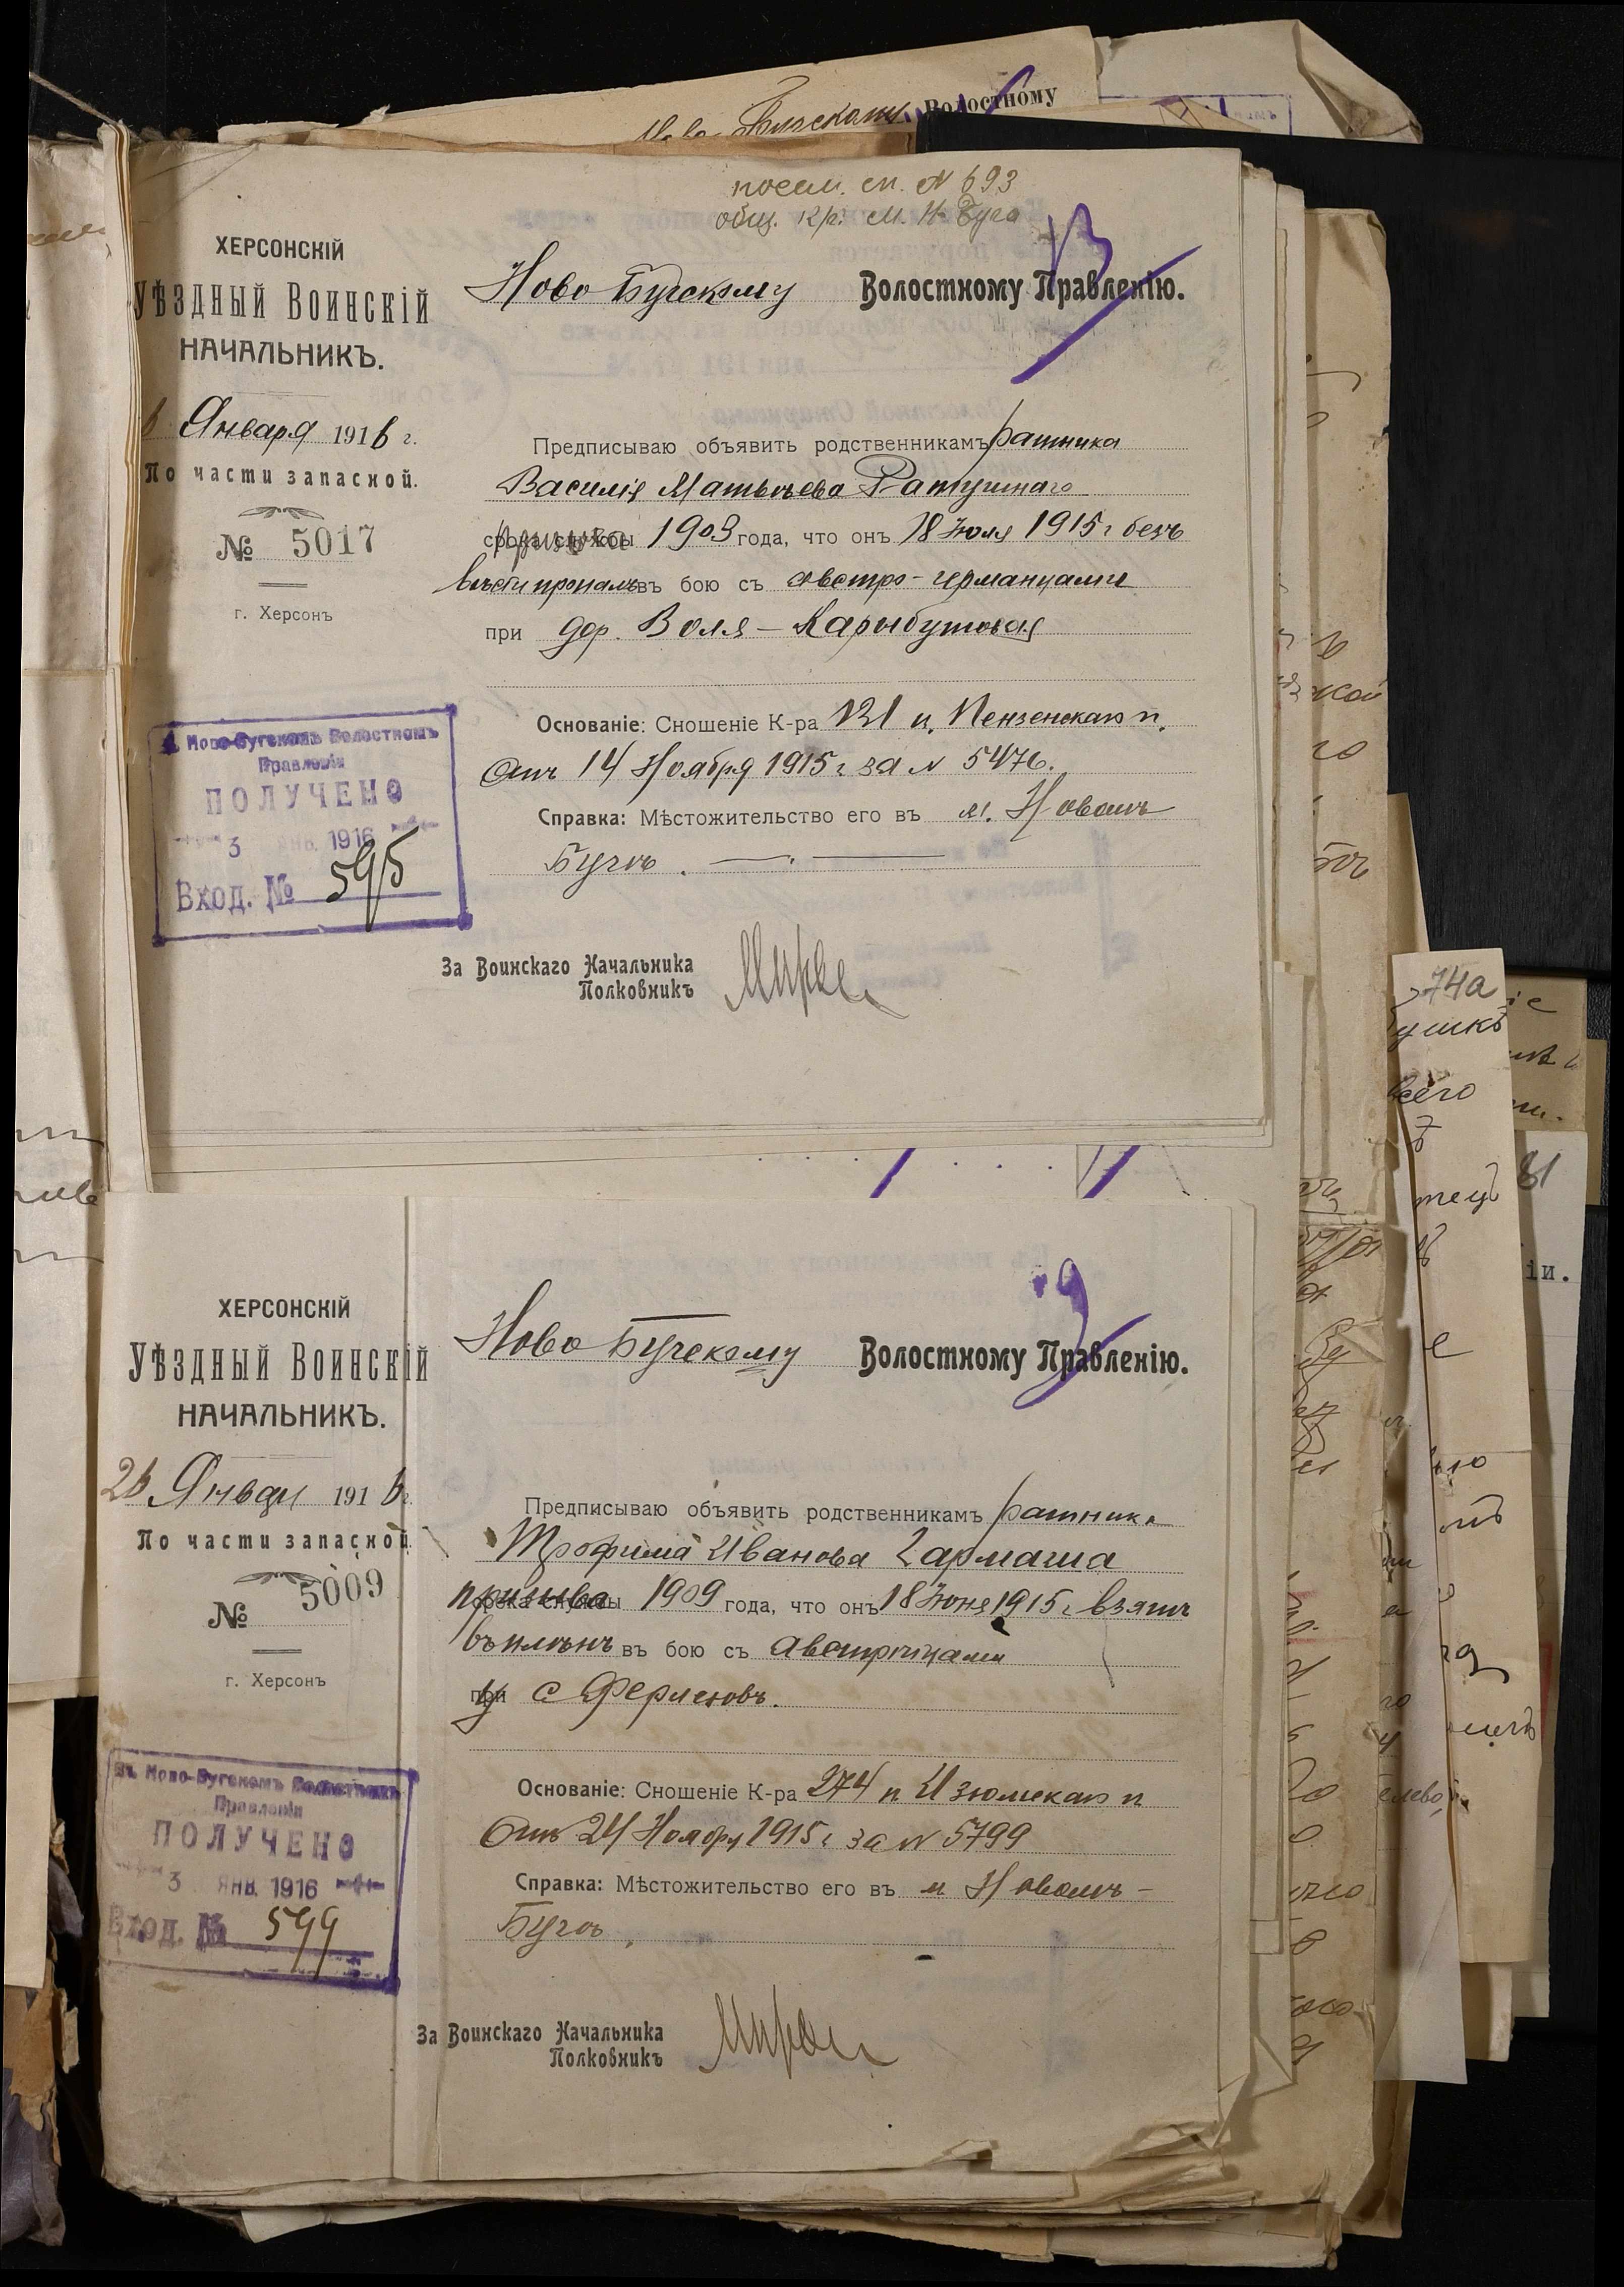 Волостному
посем. сп. N 693
общ. кр. м. Н-Буга
ХЕРСОНСКІЙ
УѢЗДНЫЙ ВОИНСКІЙ
НАЧАЛЬНИКЪ.
Января 1916 г.
По части запасной.
№ 5017
г. Херсонъ
Ново Бугскому Волостному Правленію.
Предписываю объявить родственникамъ ратника
Василія Матвѣева Ратушнаго
призыва 1903 года, что онъ 18 Юоля 1915 г безъ
вѣсти пропалъ въ бою съ австро-германцами
при дер. Воля-Карыбутовая
Основаніе: Сношеніе К-ра 121 п. Пензенскаго п.
Отъ 14 Ноября 1915 г за N 5476.
Справка: Мѣстожительство его въ м. Новомъ
Бугѣ.
За Воинскаго Начальника
Полковникъ
Ново-Бугскомъ Волостномъ
Правленіи
ПОЛУЧЕНО
3 ЯНВ. 1916
Вход. № 595
ХЕРСОНСКІЙ
УѢЗДНЫЙ ВОИНСКІЙ
НАЧАЛЬНИКЪ.
1916 г.
По части запасной.
№ 5009
г. Херсонъ
Ново Бугскому Волостному Правленію.
Предписываю объявить родственникамъ ратника
Трофима Иванова Гармаша
призыва 1909 года, что онъ 18 Юня 1915 г взятъ
въ плѣнъ въ бою съ австрійцами
у с Ферлеювъ.
Основаніе: Сношеніе К-ра 274 п Изюмскаго п
Отъ 24 Ноября 1915 г за N 5799
Справка: Мѣстожительство его въ м Новомъ-
Бугѣ.
За Воинскаго Начальника
Полковникъ
Въ Ново-Бугскомъ Волостномъ
Правленіи
ПОЛУЧЕНО
3 ЯНВ. 1916
Вход. № 599
74а
всего
81